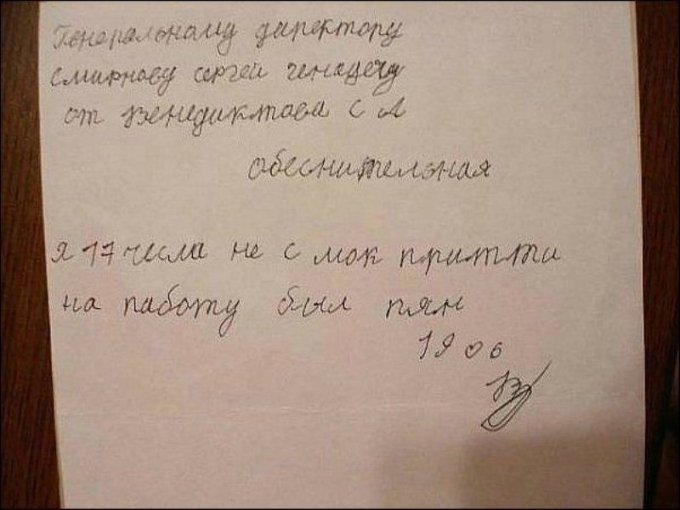 Генеральному директору
Смирнову сергей генадечу
от Венедиктова С Л
обеснительная
я 17 числа не с мок притти
на работу был пян
19 06